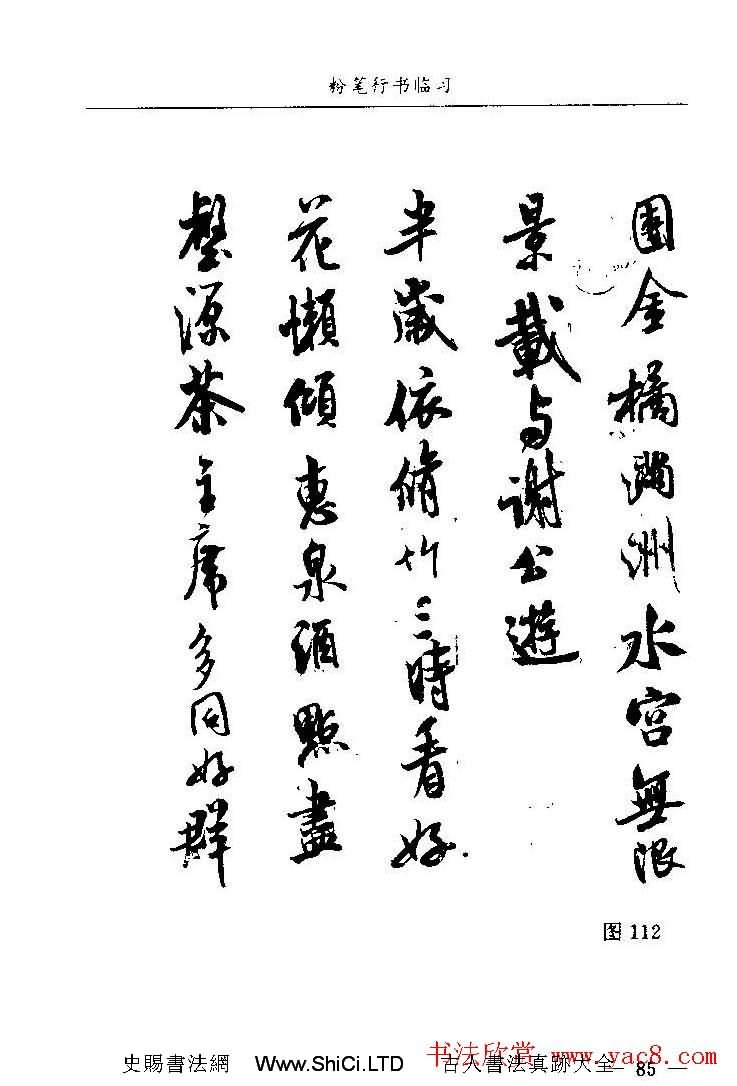 粉笔行书临习
團金橘滿洲水宮無限
景載与謝公遊
半歲依脩竹三時看好
花懶傾惠泉酒點盡
壑源茶主席多同好群
图 112
史賜書法網 Www.ShiCi.LTD 古人書法真跡大全
书法欣赏 www.yac8.com
— 85 —